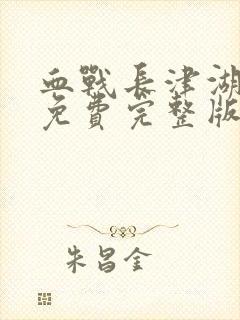 血戰長津湖
免費完整版
朱昌金